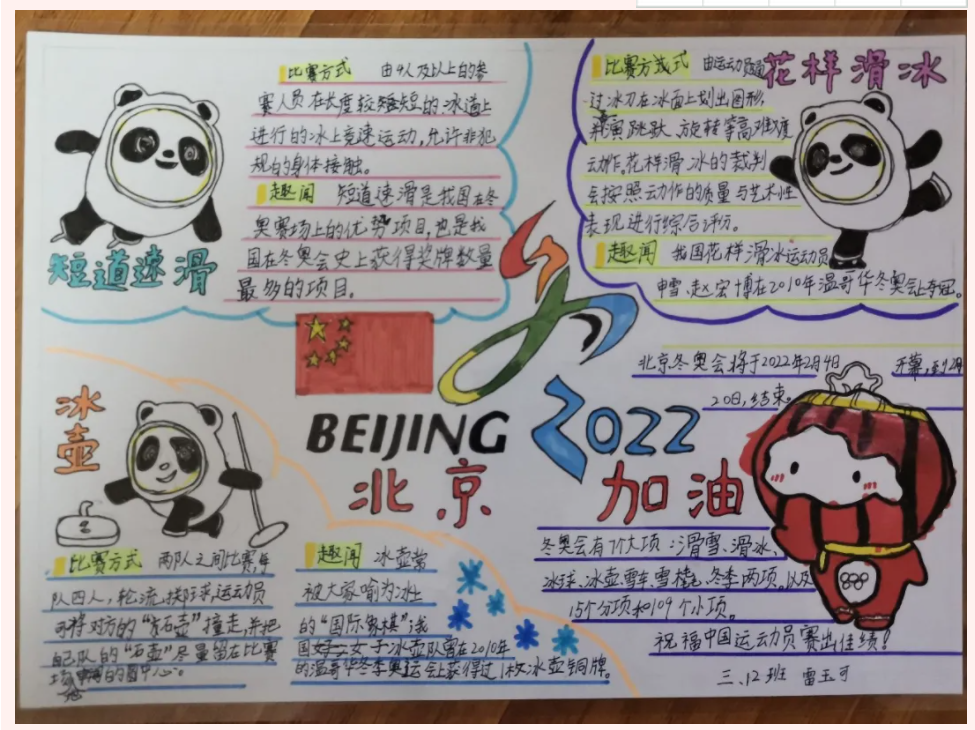 比赛方式 由4人及以上的参
赛人员在长度较短的冰道上
进行的冰上竞速运动,允许非犯
规的身体接触。
趣闻 短道速滑是我国在冬
奥赛场上的优势项目,也是我
国在冬奥会史上获得奖牌数量
最多的项目。
短道速滑
花样滑冰
比赛方式 由运动员通
过冰刀在冰面上划出图形,
表演跳跃、旋转等高难度
动作。花样滑冰的裁判
会按照动作的质量与艺术性
表现进行综合评价。
趣闻 我国花样滑冰运动员
申雪、赵宏博在2010年温哥华冬奥会上夺冠。
北京冬奥会将于2022年2月4日 开幕,到2月
20日,结束。
BEIJING 2022
北京 加油
冰壶
比赛方式 两队之间比赛,每
队四人,轮流掷球,运动员
可将对方的“石壶”撞走,并把
自己队的“石壶”尽量留在比赛
场的圆中心。
趣闻 冰壶常
被大家喻为冰上
的“国际象棋”我
国女子冰壶队曾在2010年
的温哥华冬季奥运会上获得过1枚冰壶铜牌。
冬奥会有7个大项:滑雪、滑冰、
冰球、冰壶、雪车、雪橇、冬季两项,以及
15个分项和109个小项。
祝福中国运动员赛出佳绩!
三、12班 雷玉可